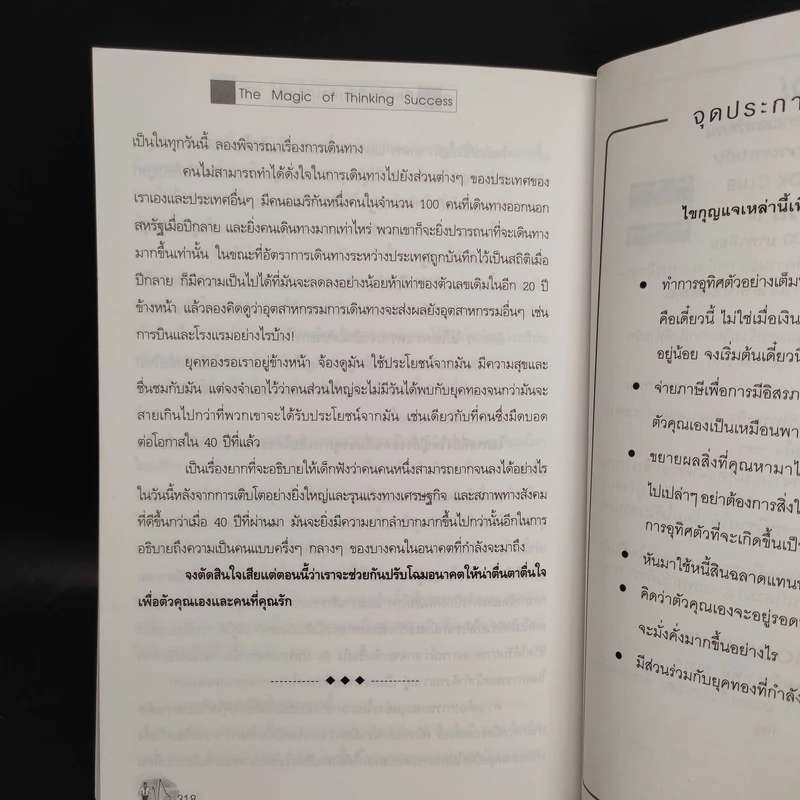 The Magic of Thinking Success
เป็นในทุกวันนี้ ลองพิจารณาเรื่องการเดินทาง
คนไม่สามารถทำได้ดั่งใจในการเดินทางไปยังส่วนต่างๆ ของประเทศของ
เราเองและประเทศอื่นๆ มีคนอเมริกันหนึ่งคนในจำนวน 100 คนที่เดินทางออกนอก
สหรัฐเมื่อปีกลาย และยิ่งคนเดินทางมากเท่าไหร่ พวกเขาก็จะยิ่งปรารถนาที่จะเดินทาง
มากขึ้นเท่านั้น ในขณะที่อัตราการเดินทางระหว่างประเทศถูกบันทึกไว้เป็นสถิติเมื่อ
ปีกลาย ก็มีความเป็นไปได้ที่มันจะลดลงอย่างน้อยห้าเท่าของตัวเลขเดิมในอีก 20 ปี
ข้างหน้า แล้วลองคิดดูว่าอุตสาหกรรมการเดินทางจะส่งผลยังอุตสาหกรรมอื่นๆ เช่น
การบินและโรงแรมอย่างไรบ้าง!
ยุคทองรอเราอยู่ข้างหน้า จ้องดูมัน ใช้ประโยชน์จากมัน มีความสุขและ
ชื่นชมกับมัน แต่จงจำเอาไว้ว่าคนส่วนใหญ่จะไม่มีวันได้พบกับยุคทองจนกว่ามันจะ
สายเกินไปกว่าที่พวกเขาจะได้รับประโยชน์จากมัน เช่นเดียวกับที่คนซึ่งมืดบอด
ต่อโอกาสใน 40 ปีที่แล้ว
เป็นเรื่องยากที่จะอธิบายให้เด็กฟังว่าคนคนหนึ่งสามารถยากจนลงได้อย่างไร
ในวันนี้หลังจากการเติบโตอย่างยิ่งใหญ่และรุนแรงทางเศรษฐกิจ และสภาพทางสังคม
ที่ดีขึ้นกว่าเมื่อ 40 ปีที่ผ่านมา มันจะยิ่งมีความยากลำบากมากขึ้นไปกว่านั้นอีกในการ
อธิบายถึงความเป็นคนแบบครึ่งๆ กลางๆ ของบางคนในอนาคตที่กำลังจะมาถึง
จงตัดสินใจเสียแต่ตอนนี้ว่าเราจะช่วยกันปรับโฉมอนาคตให้น่าตื่นตาตื่นใจ
เพื่อตัวคุณเองและคนที่คุณรัก
218
จุดประกา
ไขกุญแจเหล่านี้เพื่
• ทำการอุทิศตัวอย่างเต็ม
คือเดี๋ยวนี้ ไม่ใช่เมื่อเงิน
อยู่น้อย จงเริ่มต้นเดี๋ยวนี้
• จ่ายภาษีเพื่อการมีอิสรภ
ตัวคุณเองเป็นเหมือนพา
• ขยายผลสิ่งที่คุณหามาไ
ไปเปล่าๆ อย่าต้องการสิ่งใ
การอุทิศตัวที่จะเกิดขึ้นเป็
• หันมาใช้หนี้สินฉลาดแทน
• คิดว่าตัวคุณเองจะอยู่รอด
จะมั่งคั่งมากขึ้นอย่างไร
• มีส่วนร่วมกับยุคทองที่กำลั